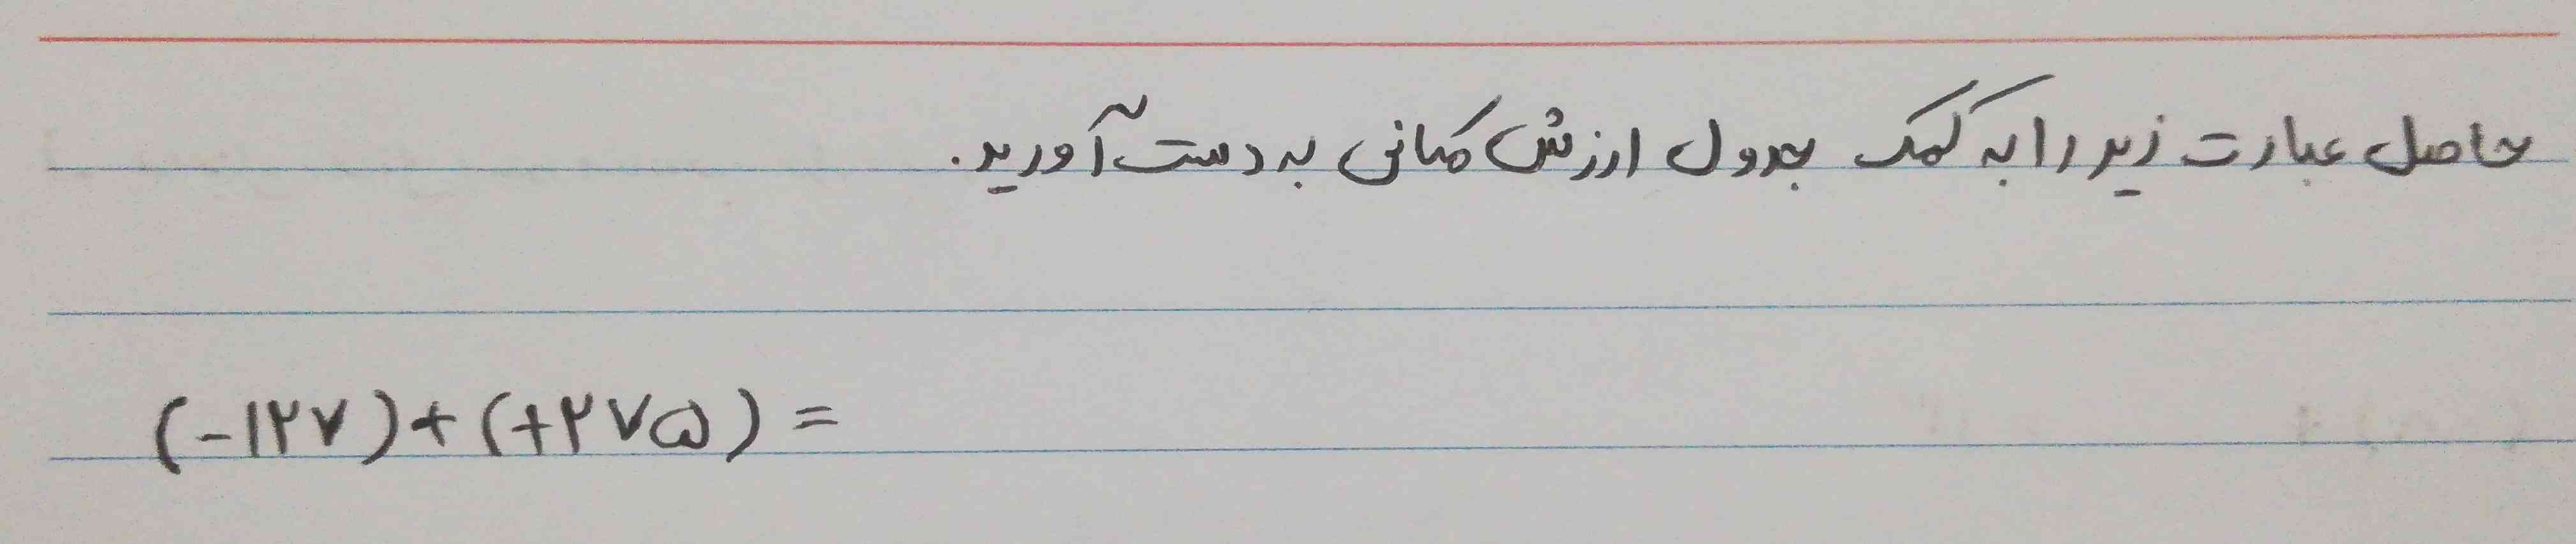 حاصل عبارت زیر را به کمک جدول ارزش مکانی به دست آورید.
(-۱۲۷)+(+۲۷۵)=